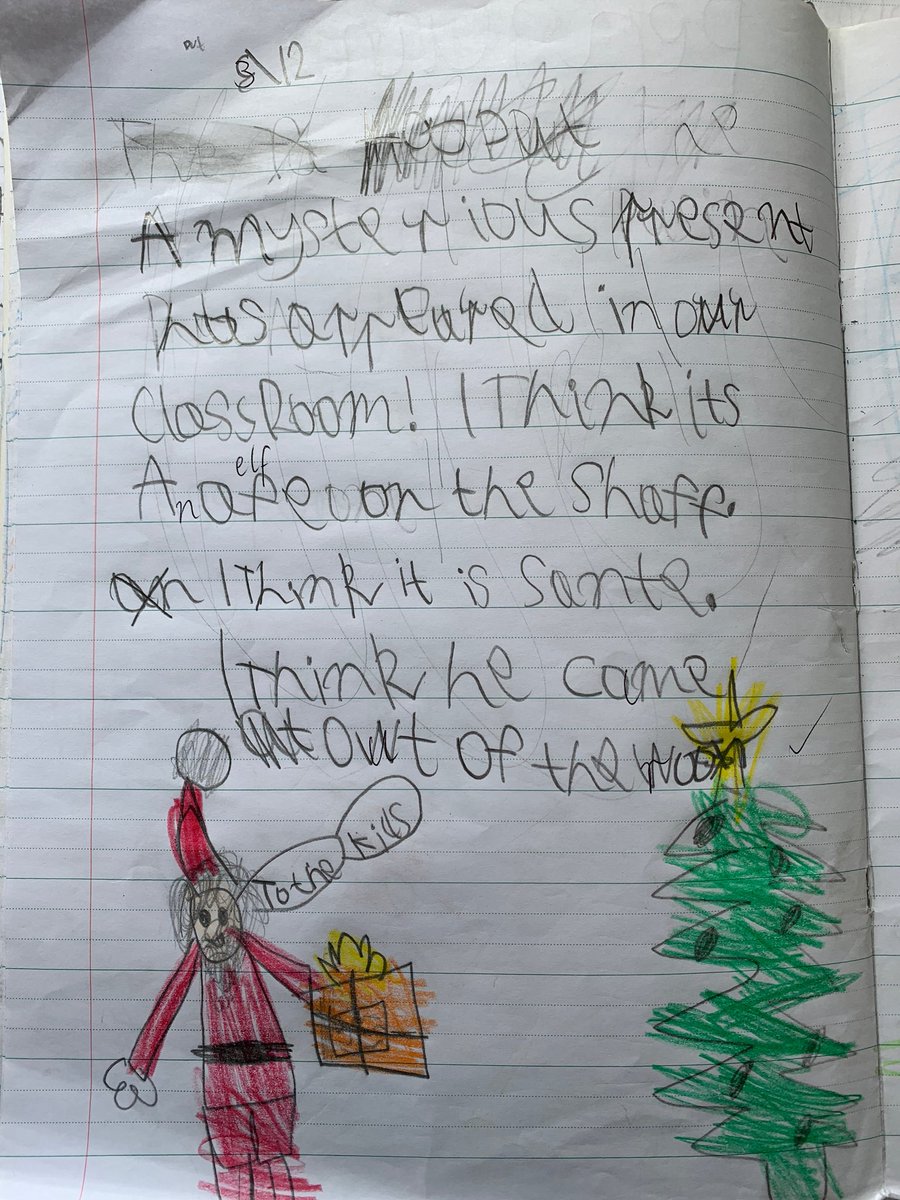 8\12
The
A mysterious present
has appeared in our
ClassRoom! I Think its
elf
An afe on the Shaff.
I Think it is Sante.
I think he came
Owt of the
To the kids